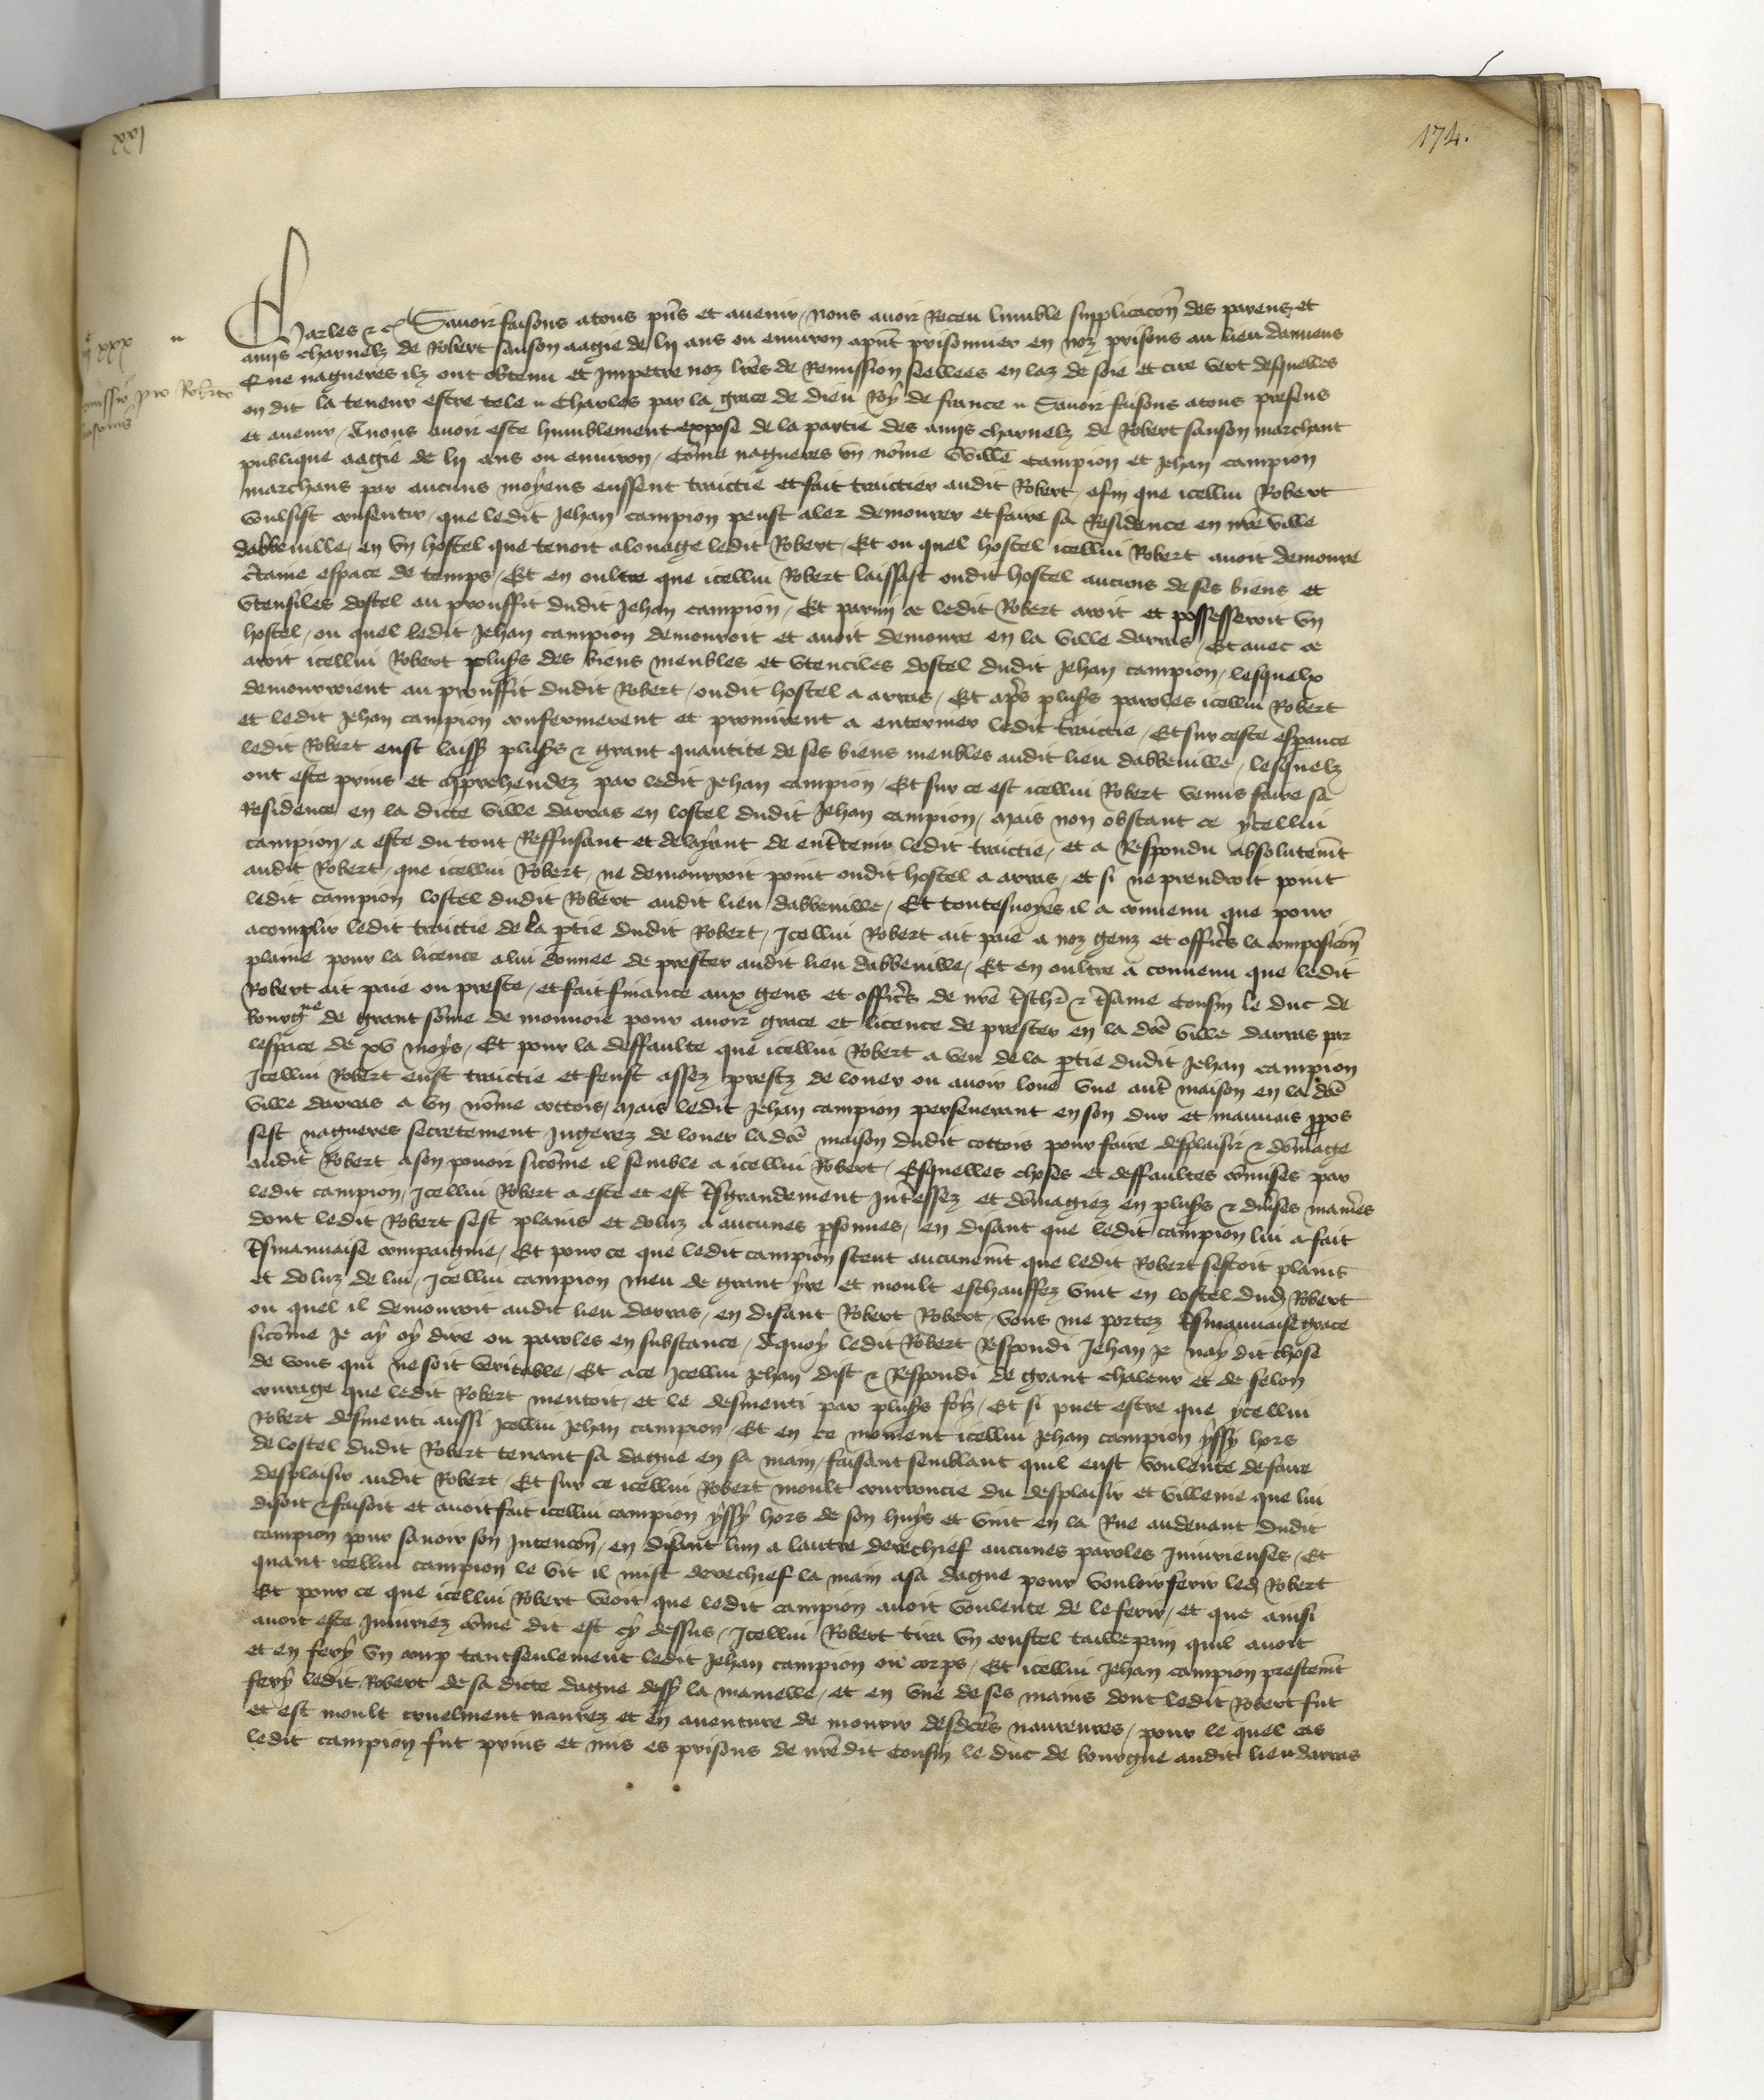 174.
xxx
Remissio pro Roberto
Sansonis
Charles etc Savoir faisons a tous pñs et avenir, nous avoir Receu lumble supplicacõn des parens et
amis charnelz de Robert Sanson aagie de lij ans ou environ apñt prisonnier en noz prisons au lieu damiens
Que nagueres ilz ont obtenu et Impetre noz lrẽs de Remission seellees en laz de soie et cire vert desquelles
on dit la teneur estre tele Charles par la grace de dieu Roy de france Savoir faisons a tous presens
et avenir, A nous avoir este humblement expose de la partie des amis charnelz de Robert Sanson marchant
publique aagie de lij ans ou environ, Cõme nagueres un nõme Willẽ Campion et Jehan Campion
marchans par aucuns moyens eussent traictie et fait traictier audit Robert, afin que icellui Robert
voulsist consentir, que ledit Jehan Campion peust aler demourer et faire sa Residence en nrẽ ville
dabbeville, en un hostel que tenoit a louage ledit Robert, Et ou quel hostel icellui Robert avoit demoure
c̃taine espace de temps, Et en oultre que icellui Robert laissast oudit hostel aucuns de ses biens et
utensiles dostel au prouffit dudit Jehan Campion, Et parmi ce ledit Robert aroit et possesseroit un
hostel, ou quel ledit Jehan Campion demouroit et avoit demoure en la ville darras, Et avec ce
aroit icellui Robert plus̃s des biens meubles et utenciles dostel dudit Jehan Campion, lesquelx
demourroient au prouffit dudit Robert, oudit hostel a arras, Et apr̃s plus̃s paroles icellui Robert
et ledit Jehan Campion confermerent et promirent a enteriner ledit traictie, Et sur ceste esp̃ance
ledit Robert eust laissẽ plus̃s et grant quantite de ses biens meubles audit lieu dabbeville, lesquelz
ont este prins et app̃rehendez par ledit Jehan Campion, Et sur ce est icellui Robert venus faire sa
Residence en la dicte ville darras en lostel dudit Jehan Campion, Mais non obstant ce ycellui
Campion, a este du tout Reffusant et delayant de ent̃tenir ledit traictie, et a Respondu absolutem̃t
audit Robert, que icellui Robert, ne demourroit point oudit hostel a arras, et si ne prendroit point
ledit Campion lostel dudit Robert audit lieu dabbeville, Et toutesvoyes il a convenu que pour
acomplir ledit traictie de la p̃tie dudit Robert, Icellui Robert ait paie a noz genz et offic̃rs la composicõn
plaine pour la licence a lui donnee de prester audit lieu dabbeville, Et en oultre a convenu que ledit
Robert ait paie ou preste, et fait finance aux gens et offic̃rs de nrẽ t̃sch̃r et t̃same Cousin le duc de
bourgne de grant sõme de monnoie pour avoir grace et licence de prester en la dc̃e ville darras par
lespace de xv moys, Et pour la deffaulte que icellui Robert a veu de la p̃tie dudit Jehan Campion
Icellui Robert eust traictie et feust assez prestz de louer ou avoir loue une aut̃ maison en la dc̃e
ville darras a un nõme cottois, Mais ledit Jehan Campion perseverant en son dur et mauvais p̃pos
sest nagueres secretement Ingerez de louer la dc̃e maison dudit cottois pour faire desplaisir et dõmage
audit Robert a son povoir sicõme il semble a icellui Robert, Esquelles choses et deffaultes cõmises par
ledit Campion, Icellui Robert a este et est t̃sgrandement Int̃essez et dõmagiez en plus̃s et diṽses manie͂s
dont ledit Robert sest plains et doluz a aucunes p̃sonnes, en disant que ledit Campion lui a fait
t̃smauvaise compaignie, Et pour ce que ledit Campion sceut aucunem̃t que ledit Robert sestoit plaint
et doluz de lui, Icellui Campion meu de grant yre et moult eschauffez vint en lostel dud Robert
ou quel il demouroit audit lieu darras, en disant Robert Robert, vous me portez t̃smauvaise grace
sicõme Je ay oy dire ou paroles en substance, A quoy ledit Robert Respondi Jehan Je nay dit chose
de vous qui ne soit veritable, Et a ce Icellui Jehan dist et Respondi de grant chaleur et de felon
courage que ledit Robert mentoit, et le desmenti par plus̃s foiz, Et si puet estre que ycellui
Robert desmenti aussi Icellui Jehan Campion, Et en ce moment icellui Jehan Campion yssy hors
de lostel dudit Robert tenant sa dague en sa main, faisant semblant quil eust voulente de faire
desplaisir audit Robert, Et sur ce icellui Robert moult courroucie du desplaisir et villenie que lui
disoit et faisoit et avoit fait icellui Campion yssy hors de son huys et vint en la Rue audevant dudit
Campion pour savoir son Intencõn, en disant lun a lautre derechief aucunes paroles Iniurieuses, Et
quant icellui Campion le vit il mist derechief la main a sa dague pour vouloir ferir led Robert
Et pour ce que icellui Robert veoit que ledit Campion avoit voulente de le ferir, et que ainsi
avoit este Iniuriez cõme dit est cy dessus, Icellui Robert tira un coustel taillepain quil avoit
et en fery un coup tant seulement ledit Jehan Campion ou corps, Et icellui Jehan Campion prestem̃t
fery ledit Robert de sa dicte dague dess̃ la mamelle, et en une de ses mains dont ledit Robert fut
et est moult cruelment navrez et en aventure de mourir desdc̃es navreures, pour le quel cas
ledit Campion fut prins et mis es prisons de nrẽdit Cousin le duc de bourgne audit lieu darras